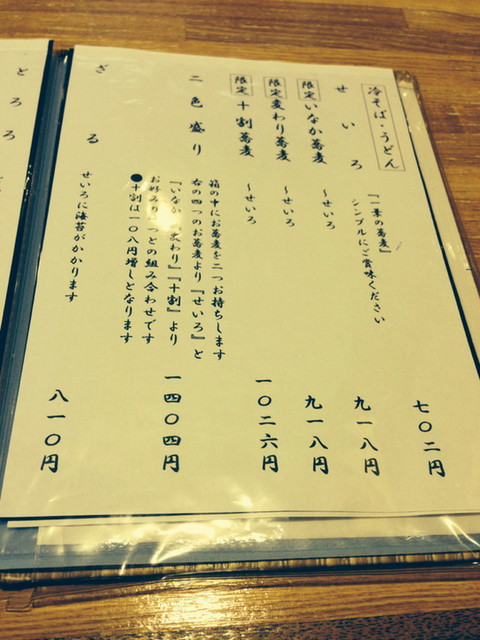 冷そば・うどん
せいろ
『一葉の蕎麦』
シンプルにご賞味ください
七〇二円
限定いなか蕎麦
～せいろ
九一八円
限定変わり蕎麦
～せいろ
九一八円
限定十割蕎麦
～せいろ
一〇二六円
二色盛り
箱の中にお蕎麦を二つお持ちします
右の四つのお蕎麦より『せいろ』と
『いなか』『変わり』『十割』より
お好み
つとの組み合わせです
●十割は一〇八円増しとなります
一四〇四円
ざる
せいろに海苔がかかります
八一〇円
とろろ